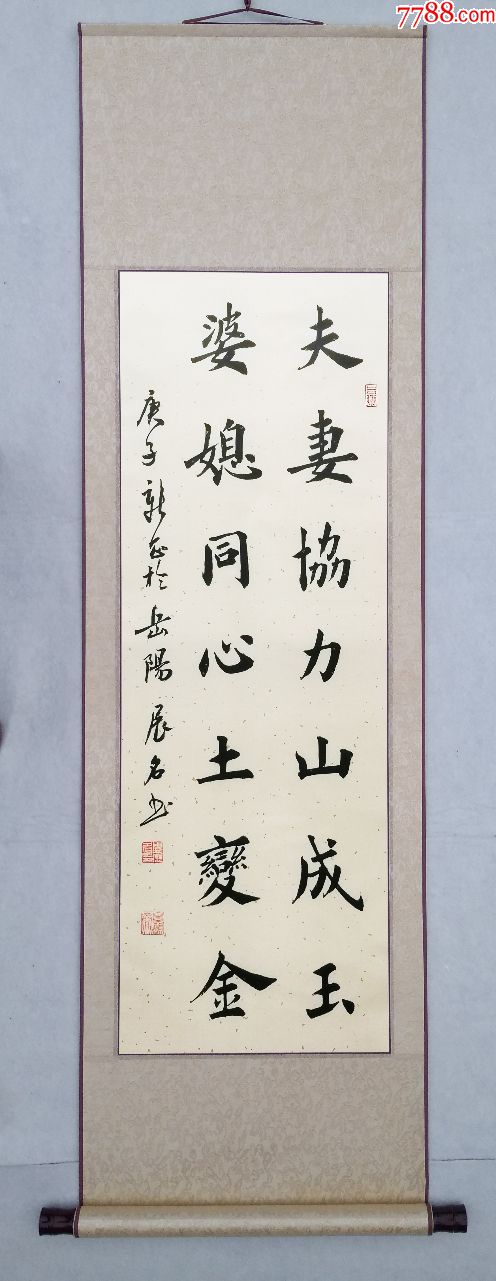 7788.com
夫妻協力山成玉
婆媳同心土變金
庚子新正於岳陽展名书